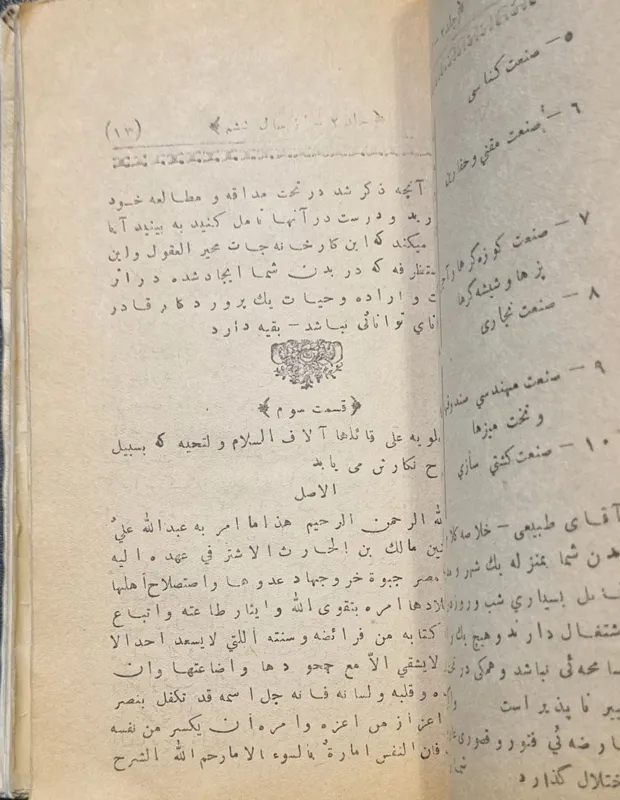 (۱۳) ﴿جلد ۲ سال ششم﴾
آنچه ذکر شد در تحت مداقه و مطالعه خود
رید و درست در آنها تامل کنید به بینید آیا
میکند که این کارخانه جات محیر العقول واین
منتظر فه که در بدن شما ایجاد شده در اثر
ت و اراده و حیات یك پرورد کار قادر
انای توانائی نباشد – بقیه دارد
﴿قسمت سوم﴾
لویه علی قائلها آلاف السلام و لتحیه که بسبیل
ح نکارش می یابد
الاصل
لله الرحمن الرحیم هذا ما امر به عبدالله علیُ
نین مالك بن الحارث الاشتر في عهده الیه
مصر جبوة خر وجهاد عدوها واستصلاح أهلها
لادها امره بتقوی الله وایثار طاعته واتباع
كتابه من فرائضه وسنته اللتي لایسعد احد الا
لایشقي الاّ مع جحودها واضاعتها وان
ده و قلبه و لسانه فانه جل اسمه قد تکفل بنصر
اعزاز من اعزه وامره أن یکسر من نفسه
فان النفس امارةُ بالسوء الا مارحم الله الشرح
۵ – صنعت کناسی
۶ – صنعت مقنی و حفاری
۷ – صنعت کوزه کرها و
پزها و شیشه کرها
۸ – صنعت نجاری
۹ – صنعت مهندسي
و تخت میزها
۱۰ – صنعت کشتي سازي
آقای طبیعی – خلاصه
دن شما بمنزله یك شهر و
مل بسیاري شب وروز
شتغال دارند و هیچ یك
محه ئی نباشد و همکی در
یر نا پذیر است
رضه ئي فتور و قصوری
ختلال کذارد